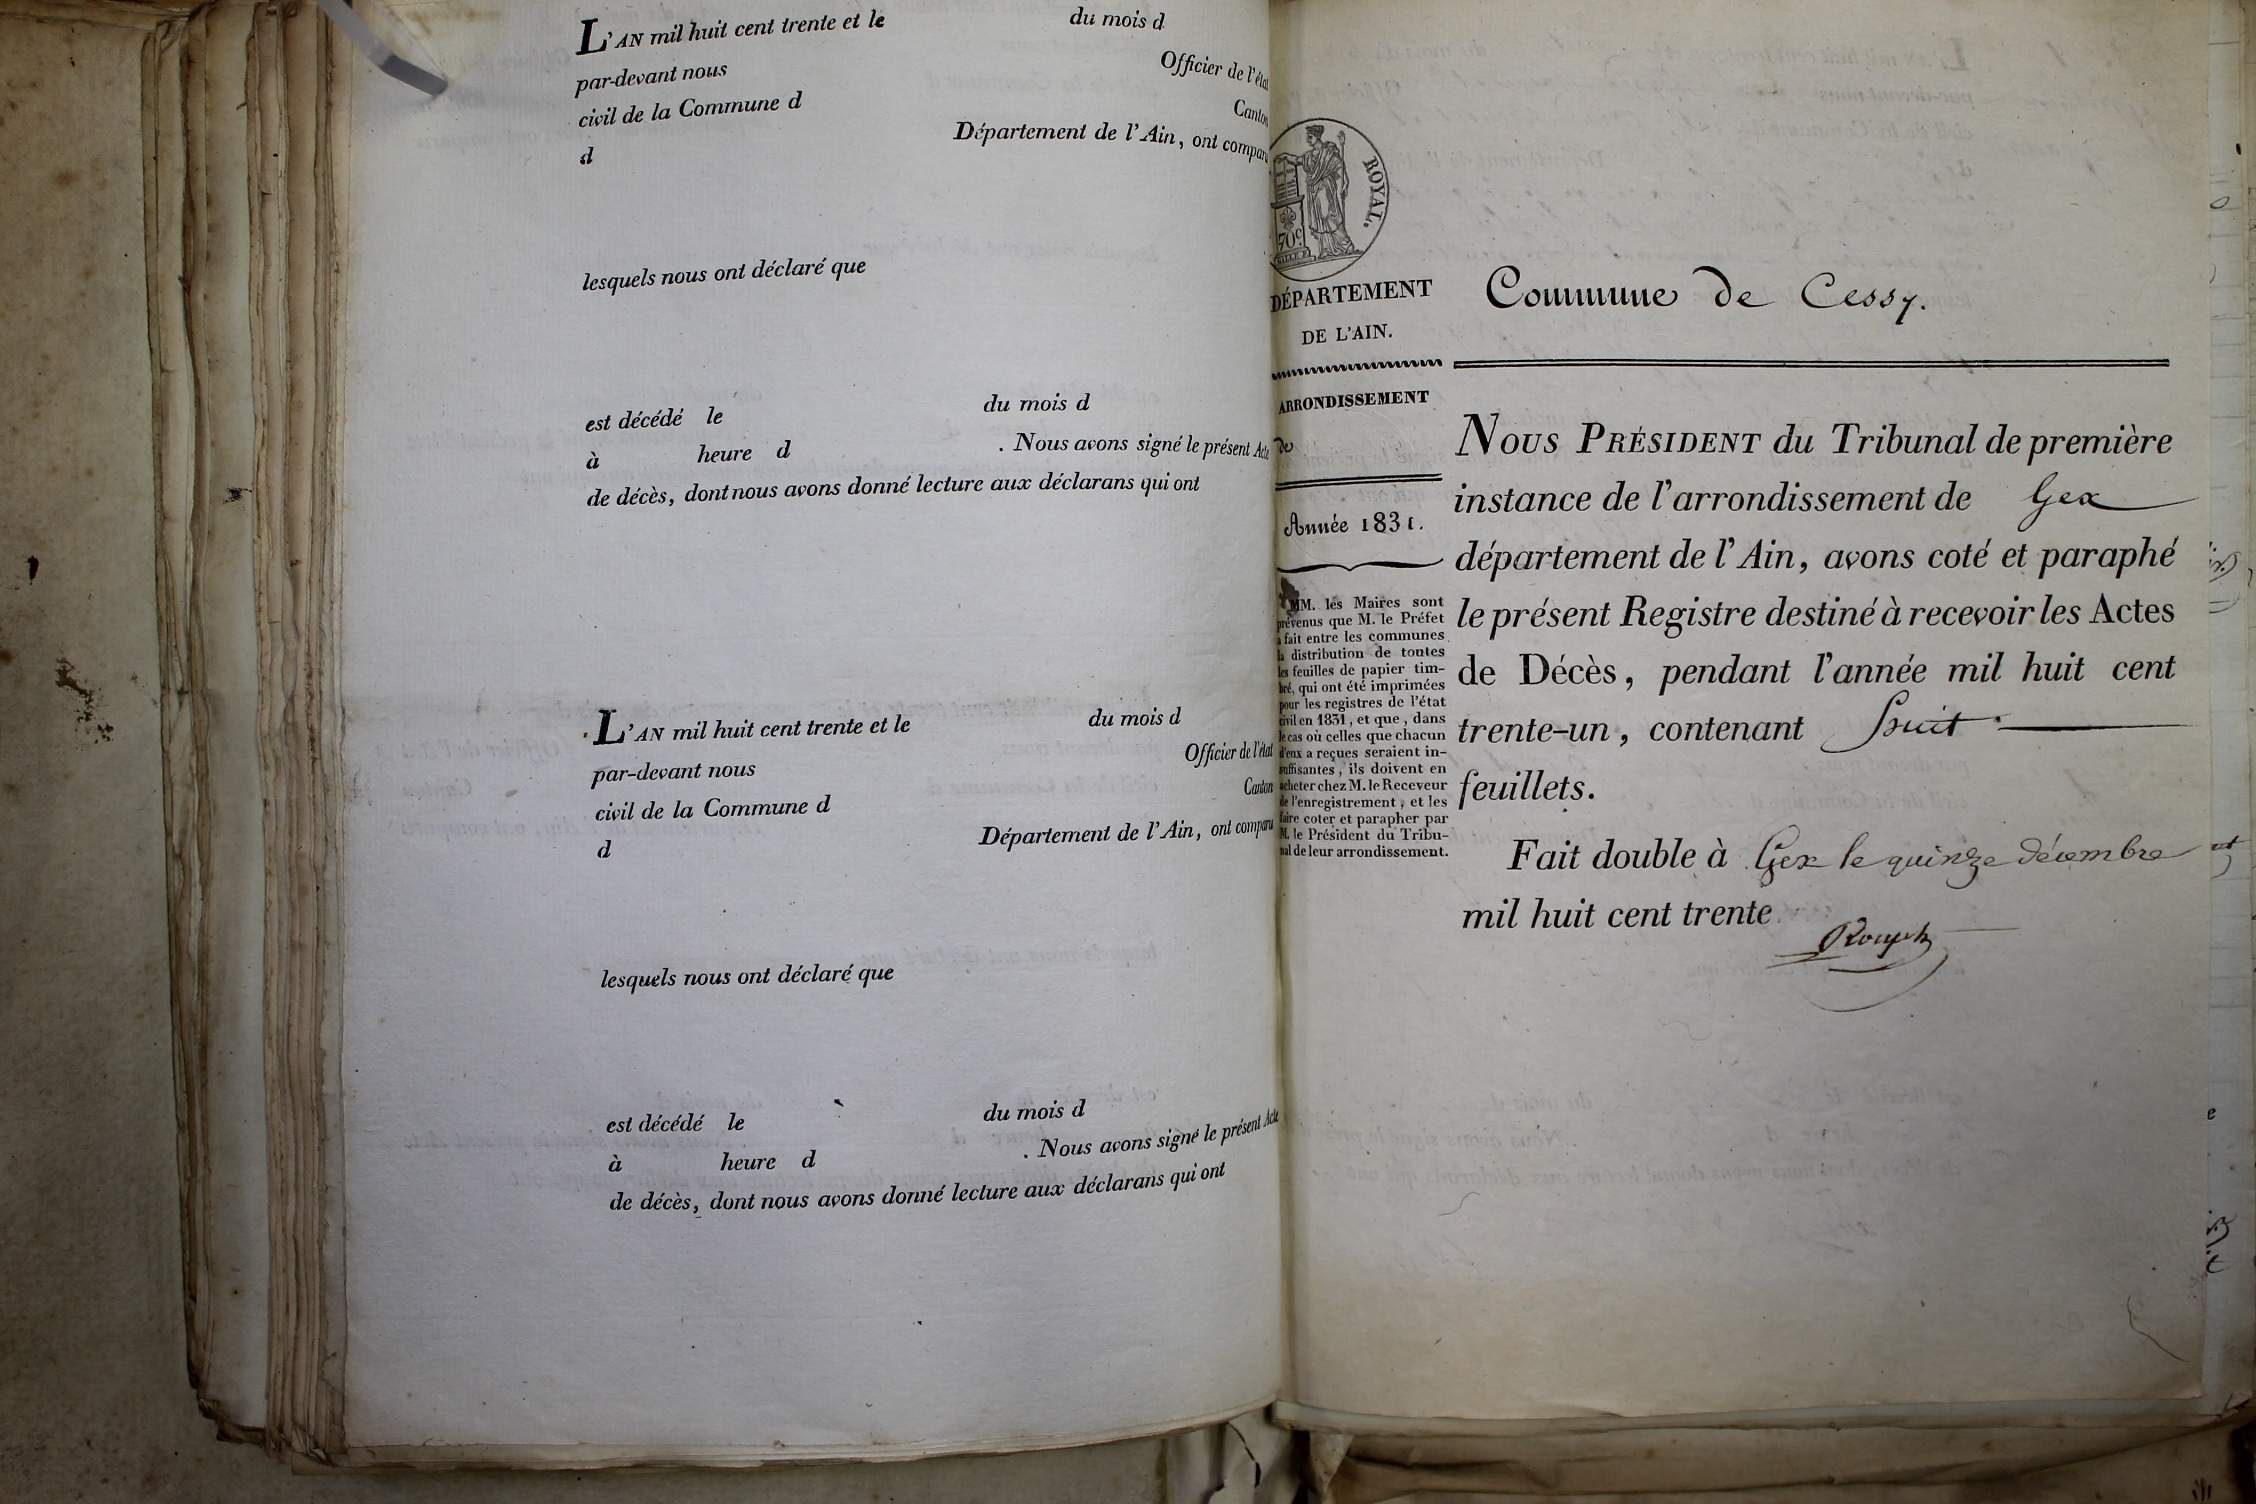 L'AN mil huit cent trente et le du mois d
par-devant nous Officier de l'état
civil de la Commune d Canton
d Département de l'Ain, ont comparu
lesquels nous ont déclaré que
est décédé le du mois d
à heure d . Nous avons signé le présent Acte
de décès, dont nous avons donné lecture aux déclarans qui ont
L'AN mil huit cent trente et le du mois d
par-devant nous Officier de l'état
civil de la Commune d Canton
d Département de l'Ain, ont comparu
lesquels nous ont déclaré que
est décédé le du mois d
à heure d . Nous avons signé le présent Acte
de décès, dont nous avons donné lecture aux déclarans qui ont
ROYAL.
70 c.
DÉPARTEMENT
DE L'AIN.
ARRONDISSEMENT
de
Année 1831.
MM. les Maires sont
prévenus que M. le Préfet
a fait entre les communes
la distribution de toutes
les feuilles de papier tim-
bré, qui ont été imprimées
pour les registres de l'état
civil en 1831, et que, dans
le cas où celles que chacun
d'eux a reçues seraient in-
suffisantes, ils doivent en
acheter chez M. le Receveur
de l'enregistrement, et les
faire coter et parapher par
M. le Président du Tribu-
nal de leur arrondissement.
Commune de Cessy.
NOUS PRÉSIDENT du Tribunal de première
instance de l'arrondissement de Gex
département de l'Ain, avons coté et paraphé
le présent Registre destiné à recevoir les Actes
de Décès, pendant l'année mil huit cent
trente-un, contenant huit
feuillets.
Fait double à Gex le quinze décembre
mil huit cent trente